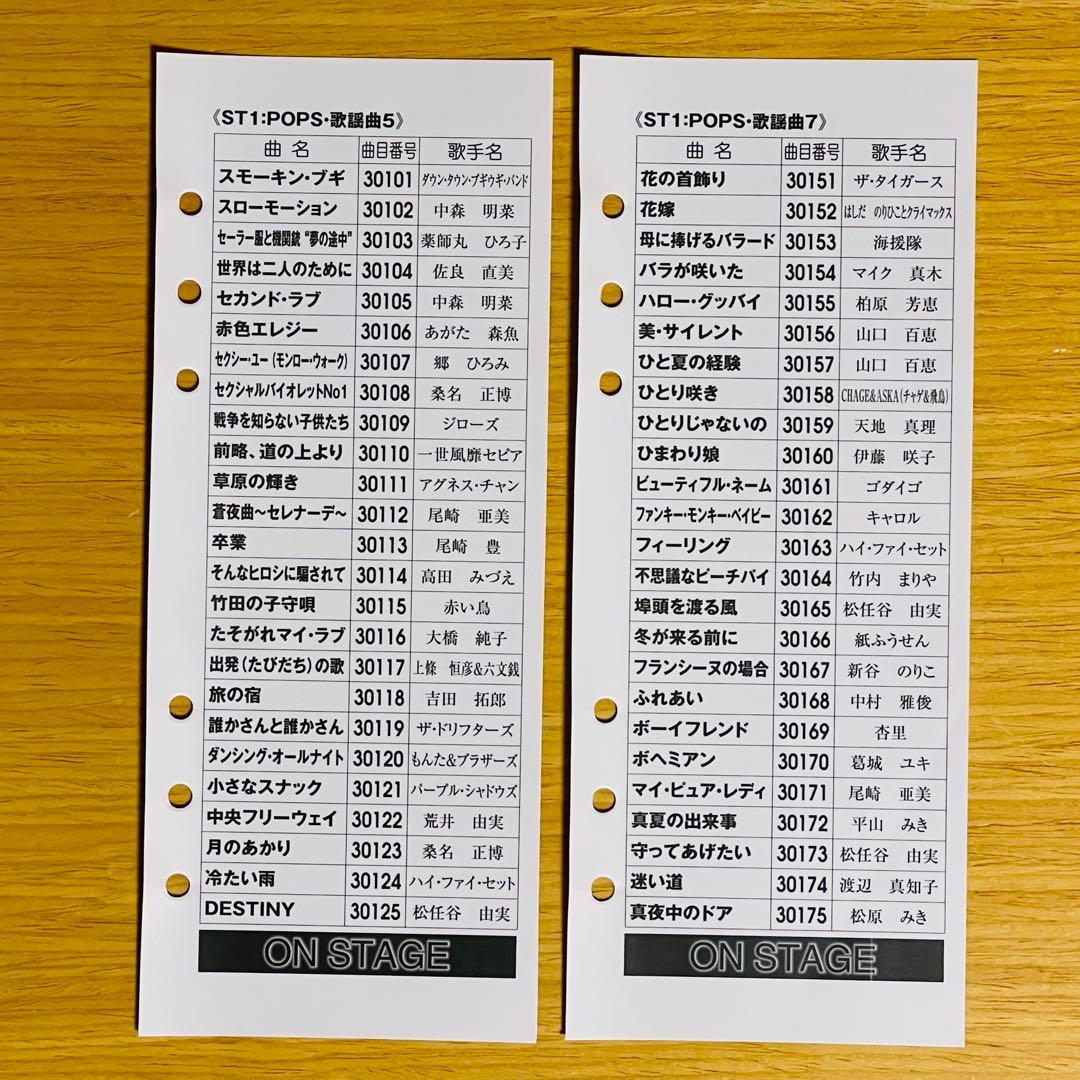 《ST1:POPS・歌謡曲5》
曲 名 曲目番号 歌手名
スモーキン・ブギ 30101 ダウン・タウン・ブギウギ・バンド
スローモーション 30102 中森 明菜
セーラー服と機関銃“夢の途中” 30103 薬師丸 ひろ子
世界は二人のために 30104 佐良 直美
セカンド・ラブ 30105 中森 明菜
赤色エレジー 30106 あがた 森魚
セクシー・ユー(モンロー・ウォーク) 30107 郷 ひろみ
セクシャルバイオレットNo1 30108 桑名 正博
戦争を知らない子供たち 30109 ジローズ
前略、道の上より 30110 一世風靡セピア
草原の輝き 30111 アグネス・チャン
蒼夜曲〜セレナーデ〜 30112 尾崎 亜美
卒業 30113 尾崎 豊
そんなヒロシに騙されて 30114 高田 みづえ
竹田の子守唄 30115 赤い鳥
たそがれマイ・ラブ 30116 大橋 純子
出発(たびだち)の歌 30117 上條 恒彦&六文銭
旅の宿 30118 吉田 拓郎
誰かさんと誰かさん 30119 ザ・ドリフターズ
ダンシング・オールナイト 30120 もんた&ブラザーズ
小さなスナック 30121 パープル・シャドウズ
中央フリーウェイ 30122 荒井 由実
月のあかり 30123 桑名 正博
冷たい雨 30124 ハイ・ファイ・セット
DESTINY 30125 松任谷 由実
ON STAGE
《ST1:POPS・歌謡曲7》
曲 名 曲目番号 歌手名
花の首飾り 30151 ザ・タイガース
花嫁 30152 はしだ のりひことクライマックス
母に捧げるバラード 30153 海援隊
バラが咲いた 30154 マイク 真木
ハロー・グッバイ 30155 柏原 芳恵
美・サイレント 30156 山口 百恵
ひと夏の経験 30157 山口 百恵
ひとり咲き 30158 CHAGE&ASKA(チャゲ&飛鳥)
ひとりじゃないの 30159 天地 真理
ひまわり娘 30160 伊藤 咲子
ビューティフル・ネーム 30161 ゴダイゴ
ファンキー・モンキー・ベイビー 30162 キャロル
フィーリング 30163 ハイ・ファイ・セット
不思議なピーチパイ 30164 竹内 まりや
埠頭を渡る風 30165 松任谷 由実
冬が来る前に 30166 紙ふうせん
フランシーヌの場合 30167 新谷 のりこ
ふれあい 30168 中村 雅俊
ボーイフレンド 30169 杏里
ボヘミアン 30170 葛城 ユキ
マイ・ピュア・レディ 30171 尾崎 亜美
真夏の出来事 30172 平山 みき
守ってあげたい 30173 松任谷 由実
迷い道 30174 渡辺 真知子
真夜中のドア 30175 松原 みき
ON STAGE